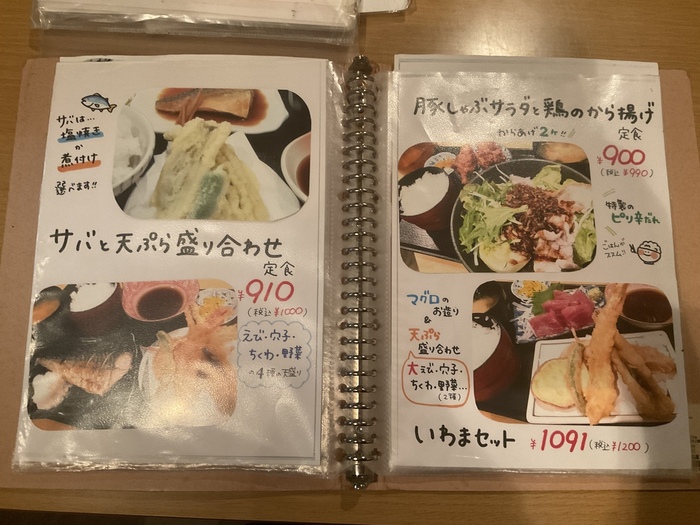 サバは…
塩焼き
か
煮付け
選べます!!
サバと天ぷら盛り合わせ
定食
¥910
(税込 ¥1000)
えび・穴子・
ちくわ・野菜
の4種の天盛り
豚しゃぶサラダと鶏のから揚げ
からあげ2ケ!!
定食
¥900
(税込 ¥990)
特製の
ピリ辛だれ
ごはんが
ススム!!
マグロの
お造り
&
天ぷら
盛り合わせ
大えび・穴子・
ちくわ・野菜…
(2種)
いわまセット ¥1091(税込 ¥1200)